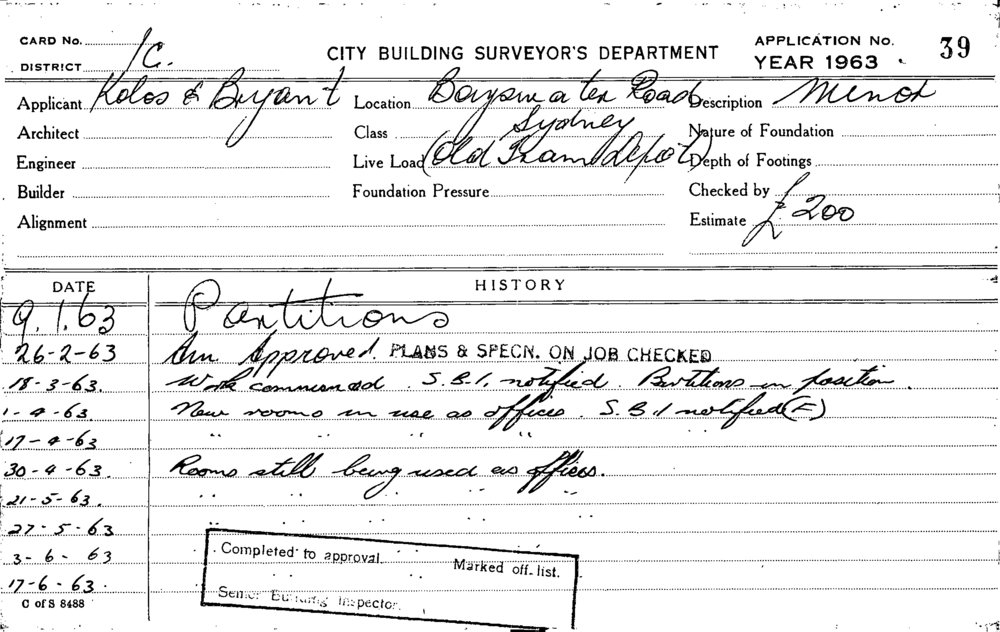 CARD No.
DISTRICT 1C.
CITY BUILDING SURVEYOR'S DEPARTMENT
APPLICATION No. 39
YEAR 1963
Applicant Kolos & Bryant Location Bayswater Road Description Minor
Architect Class Sydney Nature of Foundation
Engineer Live Load (Old Tram Depot) Depth of Footings
Builder Foundation Pressure Checked by
Alignment Estimate £200
DATE HISTORY
9.1.63 Partitions
26-2-63 Am. Approved. PLANS & SPECN. ON JOB CHECKED
18-3-63. Work commenced. S.B.I. notified. Partitions in position.
1-4-63 New rooms in use as offices. S.B.I notified (F)
17-4-63 " " " "
30-4-63. Rooms still being used as offices.
21-5-63. " " " "
27-5-63 " " " "
3-6-63 " " " "
Completed to approval. Marked off list.
17-6-63.
Senior Building Inspector.
C of S 8488